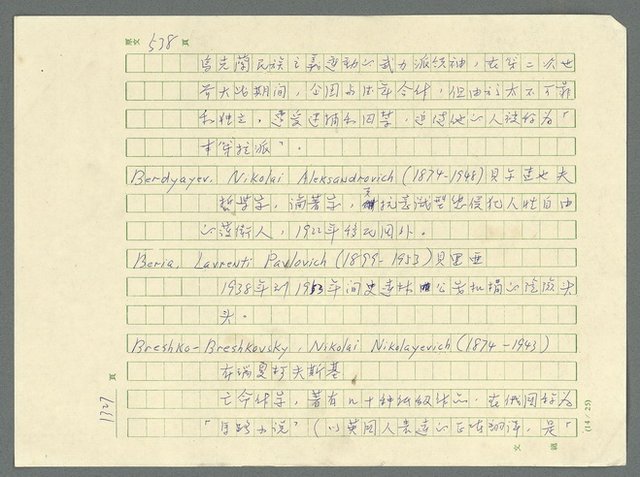 原文 538 頁
烏克蘭民族主義運動的武力派領袖，在第二次世
界大戰期間，企圖與德軍合作，但由於太不可靠
和獨立，遭受逮捕和囚禁，追隨他的人被稱為「
班德拉派」。
Berdyayev, Nikolai Aleksandrovich (1874-1948) 貝尔達也夫
哲學家，論著家，對抗意識型態侵犯人性自由
的護衛人，1922年移民國外。
Beria, Lavrenti Pavlovich (1899-1953) 貝里亞
1938年到1953年間史達林公安机構的陰險头
头。
Breshko-Breshkovsky, Nikolai Nikolayevich (1874-1943)
布瑞夏柯夫斯基
亡命作家，著有几十种低級作品，在俄國称为
「馬路小説」(以英國人表達的正確翻译，是「
頁 1327
(14/25)
文 稿